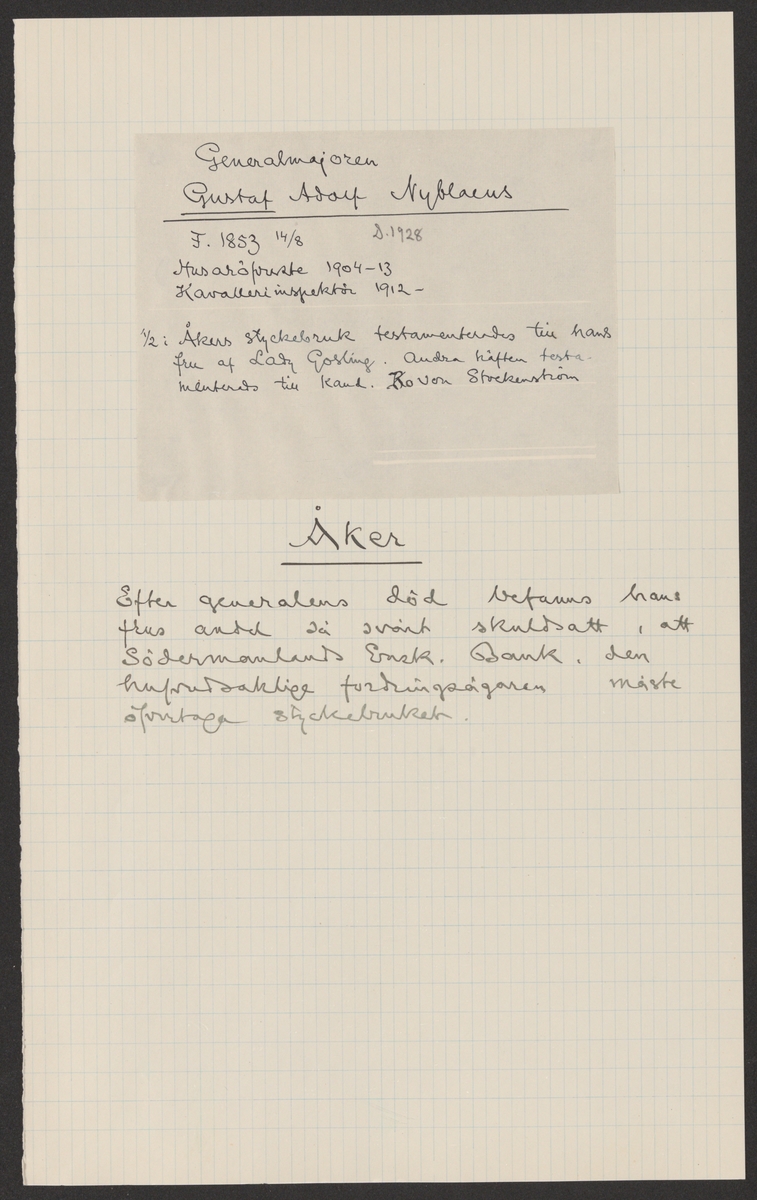 Generalmajoren
Gustaf Adolf Nyblaeus
F. 1853 14/8 D. 1928
Husaröfverste 1904-13
Kavalleriinspektör 1912-
1/2 i Åkers styckebruk testamenterades till hans
fru af Lady Gosling. Andra hälften testa-
menterades till Kand. Bo von Stockenström
Åker
Efter generalens död befanns hans
frus andel så svårt skuldsatt, att
Södermanlands Ensk. Bank, den
hufvudsaklige fordringsägaren måste
öfvertaga styckebruket.